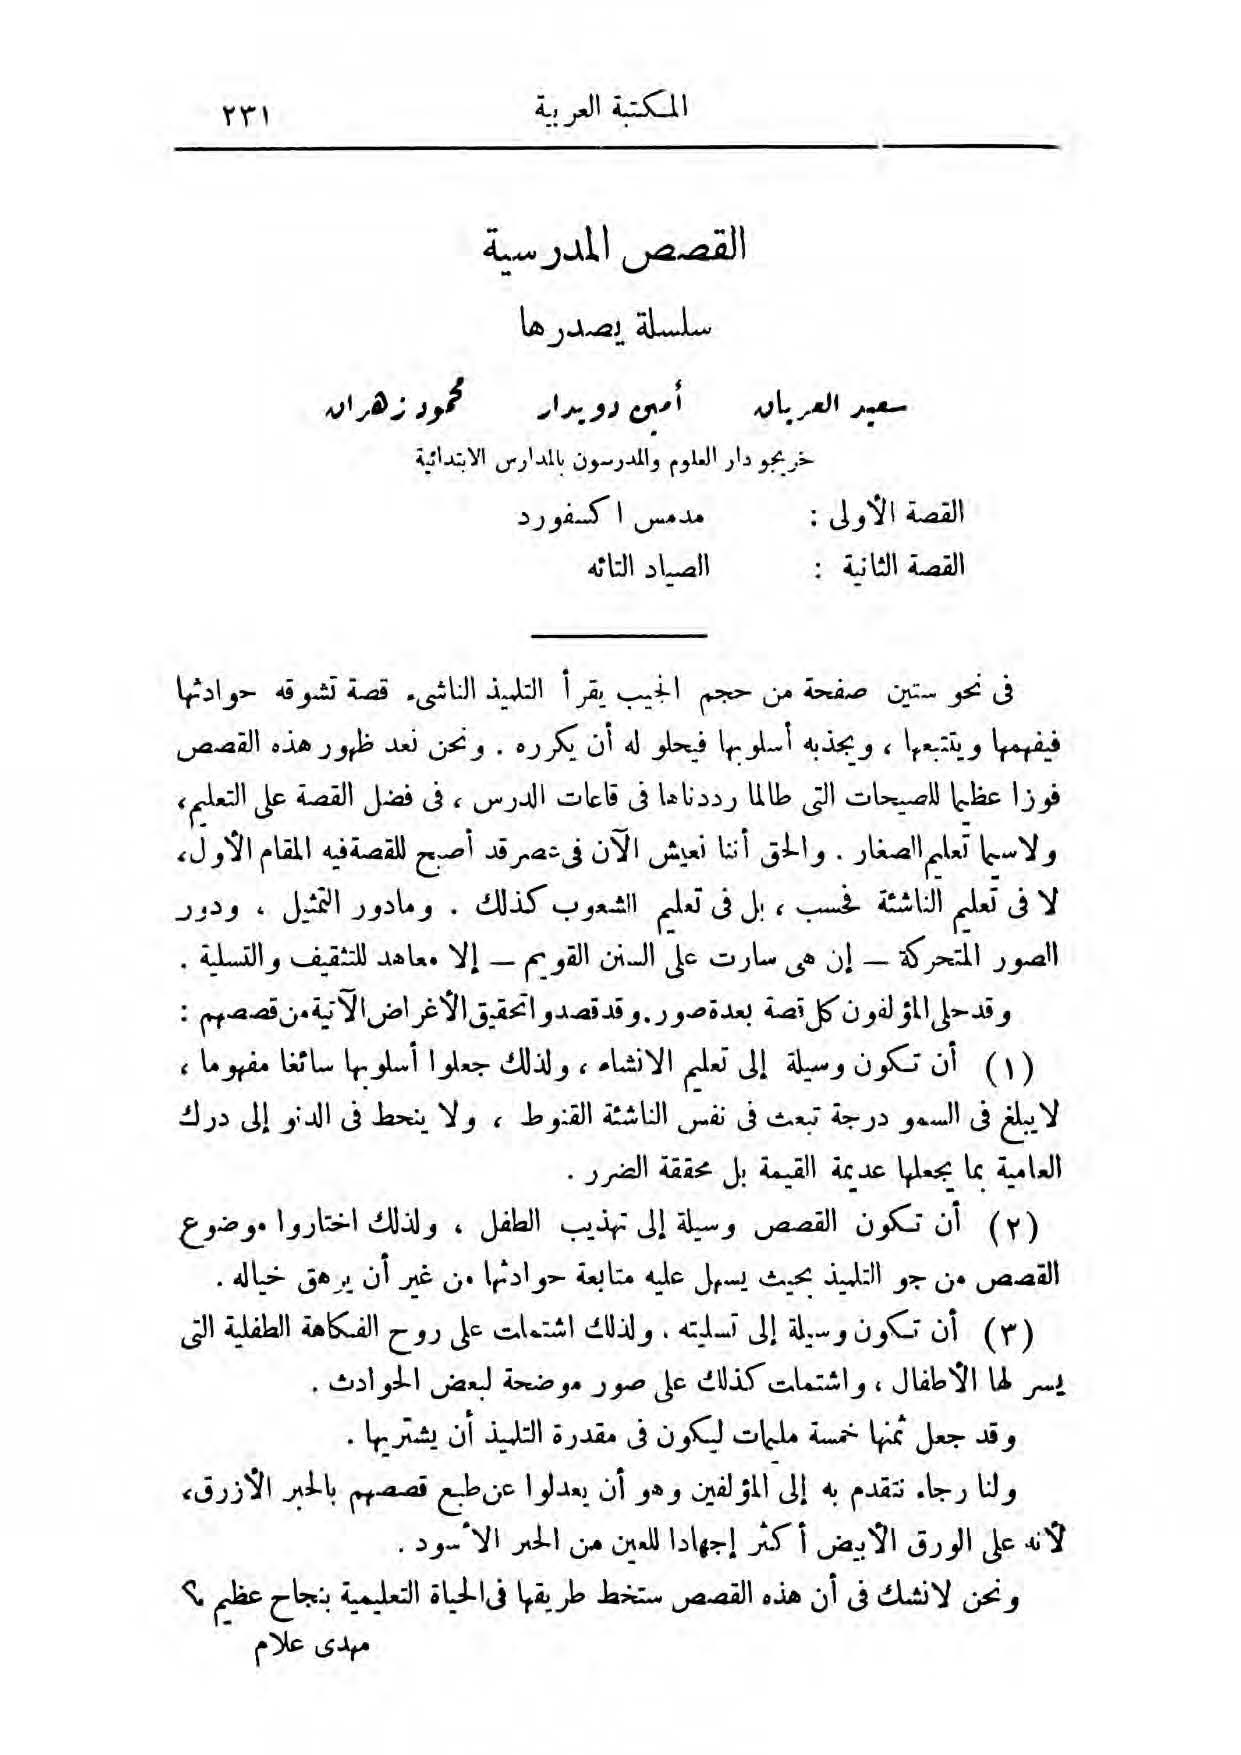 المكتبة العربية ٢٣١
القصص المدرسية
سلسلة يصدرها
سعيد العريان أمين دويدار محمود زهران
خريجو دار العلوم والمدرسون بالمدارس الابتدائية
القصة الأولى : مدمس اكسفورد
القصة الثانية : الصياد التائه
فى نحو ستين صفحة من حجم الجيب يقرأ التلميذ الناشىء قصة تشوقه حوادثها
فيفهمها ويتتبعها ، ويجذبه أسلوبها فيحلو له أن يكرره . ونحن نعد ظهور هذه القصص
فوزا عظيما للصيحات التى طالما رددناها فى قاعات الدرس ، فى فضل القصة على التعليم،
ولاسيما تعليم الصغار . والحق أننا نعيش الآن فى عصر قد أصبح للقصة فيه المقام الأول،
لا فى تعليم الناشئة فحسب ، بل فى تعليم الشعوب كذلك . ومادور التمثيل ، ودور
الصور المتحركة — إن هى سارت على السنن القويم — إلا معاهد للتثقيف والتسلية .
وقد حلى المؤلفون كل قصة بعدة صور . وقد قصدوا تحقيق الأغراض الآتية من قصصهم :
(١) أن تكون وسيلة إلى تعليم الانشاء ، ولذلك جعلوا أسلوبها سائغا مفهوما ،
لايبلغ فى السمو درجة تبعث فى نفس الناشئة القنوط ، ولا ينحط فى الدنو إلى درك
العامية بما يجعلها عديمة القيمة بل محققة الضرر .
(٢) أن تكون القصص وسيلة إلى تهذيب الطفل ، ولذلك اختاروا موضوع
القصص من جو التلميذ بحيث يسهل عليه متابعة حوادثها من غير أن يرهق خياله .
(٣) أن تكون وسيلة إلى تسليته . ولذلك اشتملت على روح الفكاهة الطفلية التى
يسر لها الأطفال ، واشتملت كذلك على صور موضحة لبعض الحوادث .
وقد جعل ثمنها خمسة مليمات ليكون فى مقدرة التلميذ أن يشتريها .
ولنا رجاء نتقدم به إلى المؤلفين وهو أن يعدلوا عن طبع قصصهم بالحبر الأزرق،
لأنه على الورق الأبيض أكثر إجهادا للعين من الحبر الأسود .
ونحن لانشك فى أن هذه القصص ستخط طريقها فى الحياة التعليمية بنجاح عظيم ؟
مهدى علام